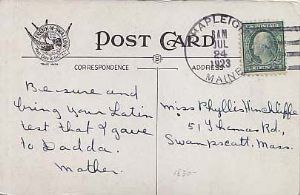 POST CARD
SHAPLEIGH
AM
JUL
24
1923
MAINE
CORRESPONDENCE
ADDRESS
Be sure and
bring your Latin
test that I gave
to Dadda.
Mother.
Miss Phyllis Hinckliffe
51 Thomas Rd.,
Swampscott, Mass.